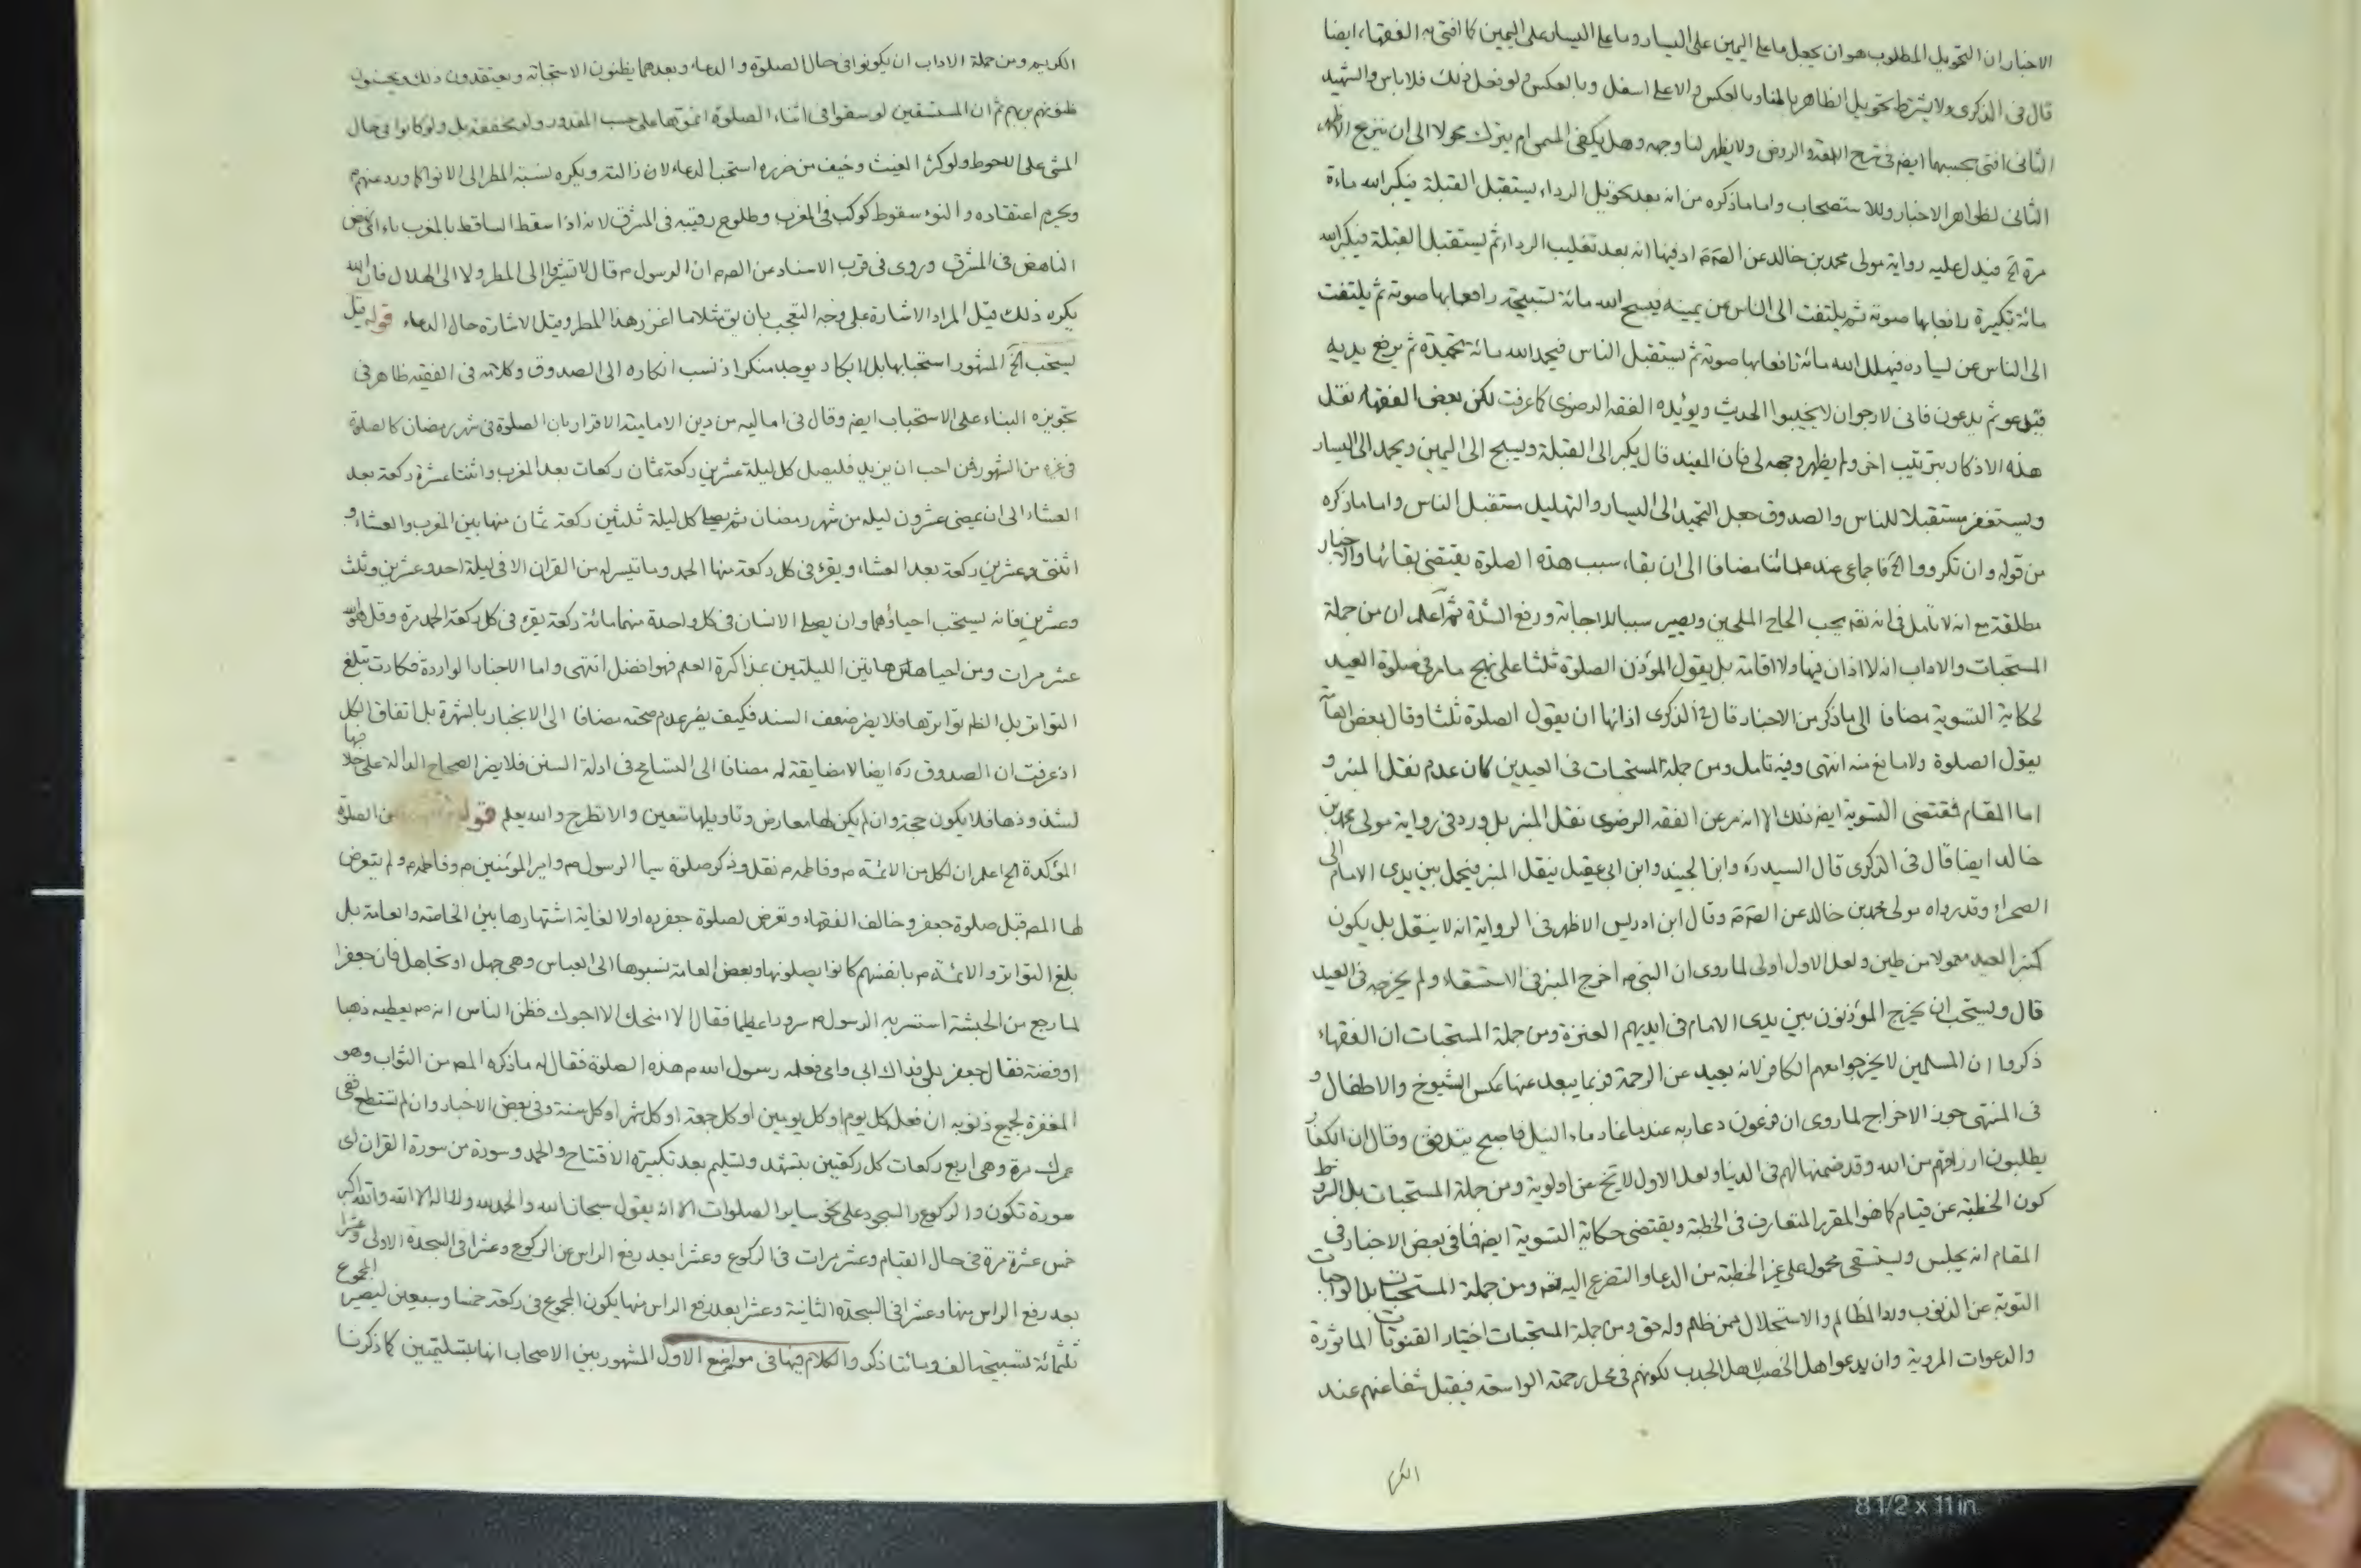 الاخبار ان التحويل المطلوب هو ان يجعل ما على اليمين على اليسار وما على اليسار على اليمين كما افتى به الفقهاء ايضا
قال فى الذكرى ولا يشترط تحويل الظاهر بالمناو بالعكس والاعلى اسفل وبالعكس ولو فعل ذلك فلا باس والشهيد
الثانى افتى بحسبهما ايضا فى شرح اللمعة والروض ولا يظهر لنا وجهه وهل يكفى المسمى ام يترك محولا الى ان ينزع الاظهر
الثانى لظواهر الاخبار وللاستصحاب واما ما ذكره من انه بعد تحويل الرداء يستقبل القبلة فيكبر الله مائة
مرة الخ فيدل عليه رواية مولى محمد بن خالد عن الصم اذ فيها انه بعد تقليب الرداء ثم يستقبل القبلة فيكبر الله
مائة تكبيرة رافعا بها صوته ثم يلتفت الى الناس عن يمينه فيسبح الله مائة تسبيحة رافعا بها صوته ثم يلتفت
الى الناس عن يساره فيهلل الله مائة رافعا بها صوته ثم يستقبل الناس فيحمد الله مائة تحميدة ثم يرفع يديه
فيدعو ثم يدعون فانى لارجو ان لا يخيبوا الحديث ويؤيده الفقه الرضوى كما عرفت لكن بعض الفقهاء نقل
هذه الاذكار بترتيب اخر ولم يظهر وجهه لى فان المفيد قال يكبر الى القبلة ويسبح الى اليمين ويحمد الى اليسار
ويستغفر مستقبلا للناس والصدوق جعل التحميد الى اليسار والتهليل مستقبل الناس واما ما ذكره
من قوله وان تكرروا الخ فاجماعى عند علمائنا مضافا الى ان بقاء سبب هذه الصلوة يقتضى بقائها والاخبار
مطلقة مع انه لا تامل فى انه تعه يحب الحاح الملحين ويصير سببا للاجابة ورفع الشدة ثم اعلم ان من جملة
المستحبات والاداب انه لا اذان فيها ولا اقامة بل يقول المؤذن الصلوة ثلثا على نهج ما مر فى صلوة العيد
لحكاية التسوية مضافا الى ما ذكر من الاخبار قال فى الذكرى اذانها ان يقول الصلوة ثلثا وقال بعض العامة
يقول الصلوة ولا مانع منه انتهى وفيه تامل ومن جملة المستحبات فى العيدين كان عدم نقل المنبر و
اما المقام فمقتضى التسوية ايضا ذلك الا انه مر عن الفقه الرضوى نقل المنبر بل ورد فى رواية مولى محمد بن
خالد ايضا قال فى الذكرى قال السيد ره وابن الجنيد وابن ابى عقيل ينقل المنبر فيحمل بين يدى الامام الى
الصحراء وقد رواه مولى محمد بن خالد عن الصم وقال ابن ادريس الاظهر فى الرواية انه لا ينقل بل يكون
كمنبر العيد معمولا من طين ولعل الاول اولى لما روى ان النبى ص اخرج المنبر فى الاستسقاء ولم يخرجه فى العيد
قال ويستحب ان يخرج المؤذنون بين يدى الامام فى ايديهم العنزة ومن جملة المستحبات ان الفقهاء
ذكروا ان المسلمين لا يخرجوا معهم الكافر لانه بعيد عن الرحمة فربما يبعد عنها عكس الشيوخ والاطفال و
فى المنتهى جوز الاخراج لما روى ان فرعون دعا ربه عندما غار ماء النيل فاصبح يتدفق وقال ان الكفار
يطلبون ارزاقهم من الله وقد ضمنها لهم فى الدنيا ولعل الاول لا يخ عن اولوية ومن جملة المستحبات بل الشروط
كون الخطبة عن قيام كما هو المقرر المتعارف فى الخطبة ويقتضى حكاية التسوية ايضا فما فى بعض الاخبار فى
المقام انه يجلس ويستسقى محمول على غير الخطبة من الدعاء والتضرع اليه تعه ومن جملة المستحبات بل الواجبات
التوبة عن الذنوب ورد المظالم والاستحلال ممن ظلم وله حق ومن جملة المستحبات اختيار القنوتات الماثورة
والدعوات المروية وان يدعو اهل الخصب لاهل الجدب لكونهم فى محل رحمته الواسعة فيقبل شفاعتهم عند
الكريم
الكريم ومن جملة الاداب ان يكونوا فى حال الصلوة والدعاء وبعدهما يظنون الاستجابة ويعتقدون ذلك ويحسنون
ظنونهم بربهم ثم ان المستسقين لو سقوا فى اثناء الصلوة اتموها على حسب المقدور ولو مخففة بل ولو كانوا فى حال
المشى على الاحوط ولو كثر الغيث وخيف من ضرره استحب الدعاء لازالته ويكره نسبة المطر الى الانواء كما ورد عنهم م
ويحرم اعتقاده والنوء سقوط كوكب فى المغرب وطلوع رقيبه فى المشرق لانه اذا سقط الساقط بالمغرب ناء اى نهض
الناهض فى المشرق وروى فى قرب الاسناد عن الصم ان الرسول م قال لا تشيروا الى المطر ولا الى الهلال فان الله
يكره ذلك قيل المراد الاشارة على وجه التعجب بان يق مثلا ما اغزر هذا المطر وقيل الاشارة حال الدعاء قوله قيل
يستحب الخ المشهور استحبابها بل لا يكاد يوجد منكر اذ نسب انكاره الى الصدوق وكلامه فى الفقيه ظاهر فى
تجويزه البناء على الاستحباب ايضا وقال فى اماليه من دين الامامية الاقرار بان الصلوة فى شهر رمضان كالصلوة
فى غيره من الشهور فمن احب ان يزيد فليصل كل ليلة عشرين ركعة ثمان ركعات بعد المغرب واثنتا عشرة ركعة بعد
العشاء الى ان يمضى عشرون ليلة من شهر رمضان ثم يصلى كل ليلة ثلثين ركعة ثمان منها بين المغرب والعشاء و
اثنتى وعشرين ركعة بعد العشاء ويقرء فى كل ركعة منها الحمد وما تيسر له من القران الا فى ليلة احد وعشرين وثلث
وعشرين فانه يستحب احياؤهما وان يصلى الانسان فى كل واحدة منهما مائة ركعة يقرء فى كل ركعة الحمد مرة وقل هو الله
عشر مرات ومن احيا هاتين الليلتين بمذاكرة العلم فهو افضل انتهى واما الاخبار الواردة فكادت تبلغ
التواتر بل الظم تواترها فلا يضر ضعف السند فكيف يضر عدم صحته مضافا الى الانجبار بالشهرة بل اتفاق الكل
اذ عرفت ان الصدوق ره ايضا لا مضايقة له مضافا الى التسامح فى ادلة السنن فلا يضر الصحاح الدالة على خلافها
لشذوذها فلا يكون حجة وان لم يكن لها معارض وتاويلها متعين والا تطرح والله يعلم قوله من الصلوة
المؤكدة الخ اعلم ان لكل من الائمة م وفاطمه م نقل وذكر صلوة سيما الرسول ص وامير المؤمنين م وفاطمه م ولم يتعرض
لها المص قبل صلوة جعفر وخالف الفقهاء وتعرض لصلوة جعفر اولا لغاية اشتهارها بين الخاصة والعامة بل
بلغ التواتر والائمة م بانفسهم كانوا يصلونها وبعض العامة نسبوها الى العباس وهى جهل او تجاهل فان جعفرا
لما رجع من الحبشة استسر به الرسول ص سرورا عظيما فقال الا امنحك الا احبوك فظن الناس انه ص يعطيه ذهبا
او فضة فقال جعفر بلى فداك ابى وامى فعلمه رسول الله ص هذه الصلوة فقال له ما ذكره المص من الثواب وهو
المغفرة لجميع ذنوبه ان فعل كل يوم او كل يومين او كل جمعة او كل شهر او كل سنة وفى بعض الاخبار وان لم تستطع ففى
عمرك مرة وهى اربع ركعات كل ركعتين بتشهد وتسليم بعد تكبيرة الافتتاح والحمد وسورة من سورة القران اى
سورة تكون والركوع والسجود على نحو ساير الصلوات الا انه يقول سبحان الله والحمد لله ولا اله الا الله والله اكبر
خمس عشرة مرة فى حال القيام وعشر مرات فى الركوع وعشرا بعد رفع الراس عن الركوع وعشرا فى السجدة الاولى وعشرا
بعد رفع الراس منها وعشرا فى السجدة الثانية وعشرا بعد رفع الراس منها يكون المجموع فى ركعة خمسا وسبعين ليصير المجموع
ثلثمائة تسبيحة الف ومائتا ذكر والكلام فيها فى مواضع الاول المشهور بين الاصحاب انها بتسليمتين كما ذكرنا
8 1/2 x 11 in.